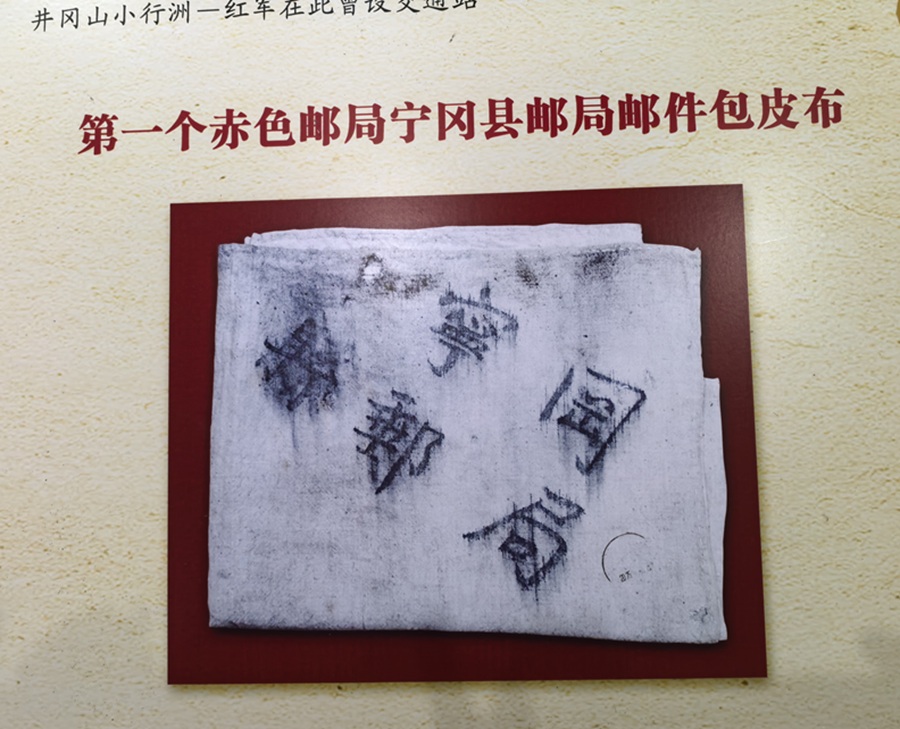 井冈山小行洲—红军在此曾设交通站
第一个赤色邮局宁冈县邮局邮件包皮布
寧岡
郵